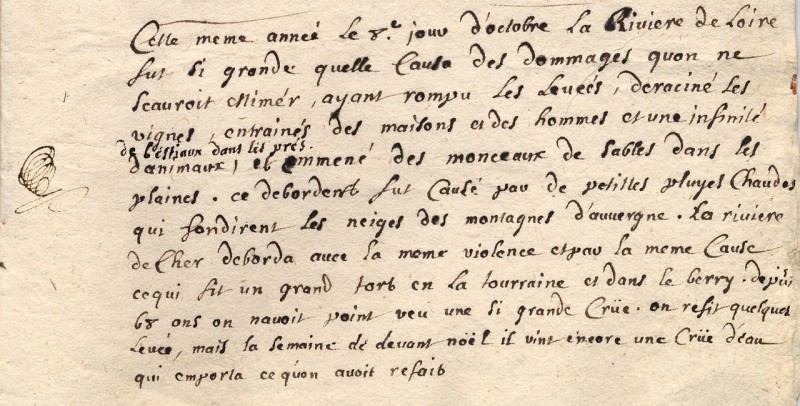 Cette meme année le 8.e jour d'octobre La Riviere de Loire
fut si grande quelle Causa des dommages quon ne
scauroit estimér, ayant rompu les Leveés, deraciné les
vignes, entrainés des maisons et des hommes et une infinité
de bestiaux dans les prés.
danimaux, et emmené des monceaux de sables dans les
plaines. ce debordent fut Causé par de petittes pluyes Chaudes
qui fondirent les neiges des montagnes d'auvergne. La riviere
de Cher deborda avec la meme violence et par la meme Cause
ce qui fit un grand tort en la tourraine et dans le berry. depuis
68 ans on navoit point veu une si grande Crüe. on refit quelques
Leveé, mais la semaine de devant noël il vint encore une Crüe d'eau
qui emporta ce quon avoit refait